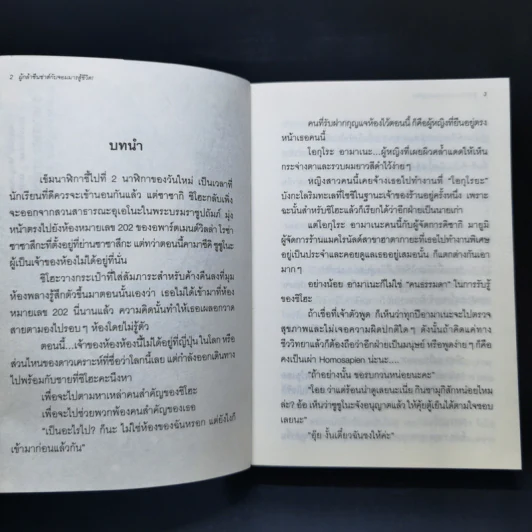 2 ผู้กล้าซึนซ่าส์กับจอมมารสู้ชีวิต!
บทนำ
เข็มนาฬิกาชี้ไปที่ 2 นาฬิกาของวันใหม่ เป็นเวลาที่
นักเรียนที่ดีควรจะเข้านอนกันแล้ว แต่ซาซากิ ชิโฮะกลับเพิ่ง
จะออกจากสวนสาธารณะอุเอโนะในพระบรมราชูปถัมภ์ มุ่ง
หน้าตรงไปยังห้องหมายเลข 202 ของอพาร์ตเมนต์วิลล่า โรซ่า
ซาซาสึกะที่ตั้งอยู่ที่ย่านซาซาสึกะ แต่ทว่าตอนนี้คามาซึคิ ซูซูโนะ
ผู้เป็นเจ้าของห้องไม่ได้อยู่ที่นั่น
ชิโฮะวางกระเป๋าที่ใส่สัมภาระสำหรับค้างคืนลงที่มุม
ห้องพลางรู้สึกตัวขึ้นมาตอนนั้นเองว่า เธอไม่ได้เข้ามาที่ห้อง
หมายเลข 202 นี่นานแล้ว ความคิดนั้นทำให้เธอเผลอกวาด
สายตามองไปรอบๆ ห้องโดยไม่รู้ตัว
ตอนนี้...เจ้าของห้องห้องนี้ไม่ได้อยู่ที่ญี่ปุ่น ในโลก หรือ
ส่วนไหนของดาวเคราะห์ที่ชื่อว่าโลกนี้เลย แต่กำลังออกเดินทาง
ไปพร้อมกับชายที่ชิโฮะคะนึงหา
เพื่อจะไปตามหาเหล่าคนสำคัญของชิโฮะ
เพื่อจะไปช่วยพวกพ้องคนสำคัญของเธอ
"เป็นอะไรไป? ก็นะ ไม่ใช่ห้องของฉันหรอก แต่ยังไงก็
เข้ามาก่อนแล้วกัน"
3
คนที่รับฝากกุญแจห้องไว้ตอนนี้ ก็คือผู้หญิงที่ยืนอยู่ตรง
หน้าเธอคนนี้
โอกุโระ อามาเนะ...ผู้หญิงที่เผยผิวคล้ำแดดให้เห็น
กระจ่างตาและรวบผมยาวสีดำไว้ง่ายๆ
หญิงสาวคนนี้เคยจ้างเธอไปทำงานที่ "โอกุโระยะ"
บังกะโลริมทะเลที่โชชิในฐานะเจ้าของร้านอยู่ครั้งหนึ่ง เพราะ
ฉะนั้นสำหรับชิโฮะแล้วก็เรียกได้ว่าอีกฝ่ายเป็นนายเก่า
แต่โอกุโระ อามาเนะคนนี้กับผู้จัดการคิซากิ มายูมิ
ผู้จัดการร้านแมคโรนัลด์สาขาฮาตากายะที่เธอไปทำงานพิเศษ
อยู่เป็นประจำและคอยดูแลเธออยู่เสมอนั้น ก็แตกต่างกันเอา
มากๆ
อย่างน้อย อามาเนะก็ไม่ใช่ "คนธรรมดา" ในการรับรู้
ของชิโฮะ
ถ้าเชื่อที่เจ้าตัวพูด ก็เห็นว่าทุกปีอามาเนะจะไปตรวจ
สุขภาพและไม่เจอความผิดปกติใดๆ ดังนั้นถ้าคิดแค่ทาง
ชีววิทยาแล้วก็ต้องถือว่าอีกฝ่ายเป็นมนุษย์ หรือพูดง่ายๆ ก็คือ
คงเป็นเผ่า Homosapien น่ะนะ....
"ถ้าอย่างนั้น ขอรบกวนหน่อยนะคะ"
"โอย ว่าแต่ร้อนน่าดูเลยนะเนี่ย กินชามุกิสักหน่อยไหม
ล่ะ? อ้อ เห็นว่าซูซูโนะจังอนุญาตแล้ว ให้คุ้ยตู้เย็นได้ตามใจชอบ
เลยนะ"
"อุ๊ย งั้นเดี๋ยวฉันชงให้ค่ะ"